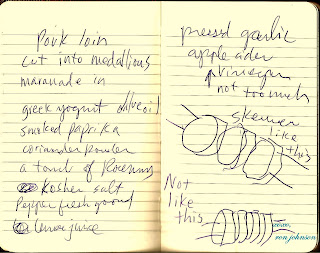 Pork loin
cut into medallions
maranade in
greek yogurt olive oil
smoked paprika
coriander powder
a touch of Rosemary
Kosher salt
Pepper fresh ground
lemon juice
pressd garlic
apple cider
vinegar
not too much
skewer
like
this
Not
like
this
xoxo,
ron johnson